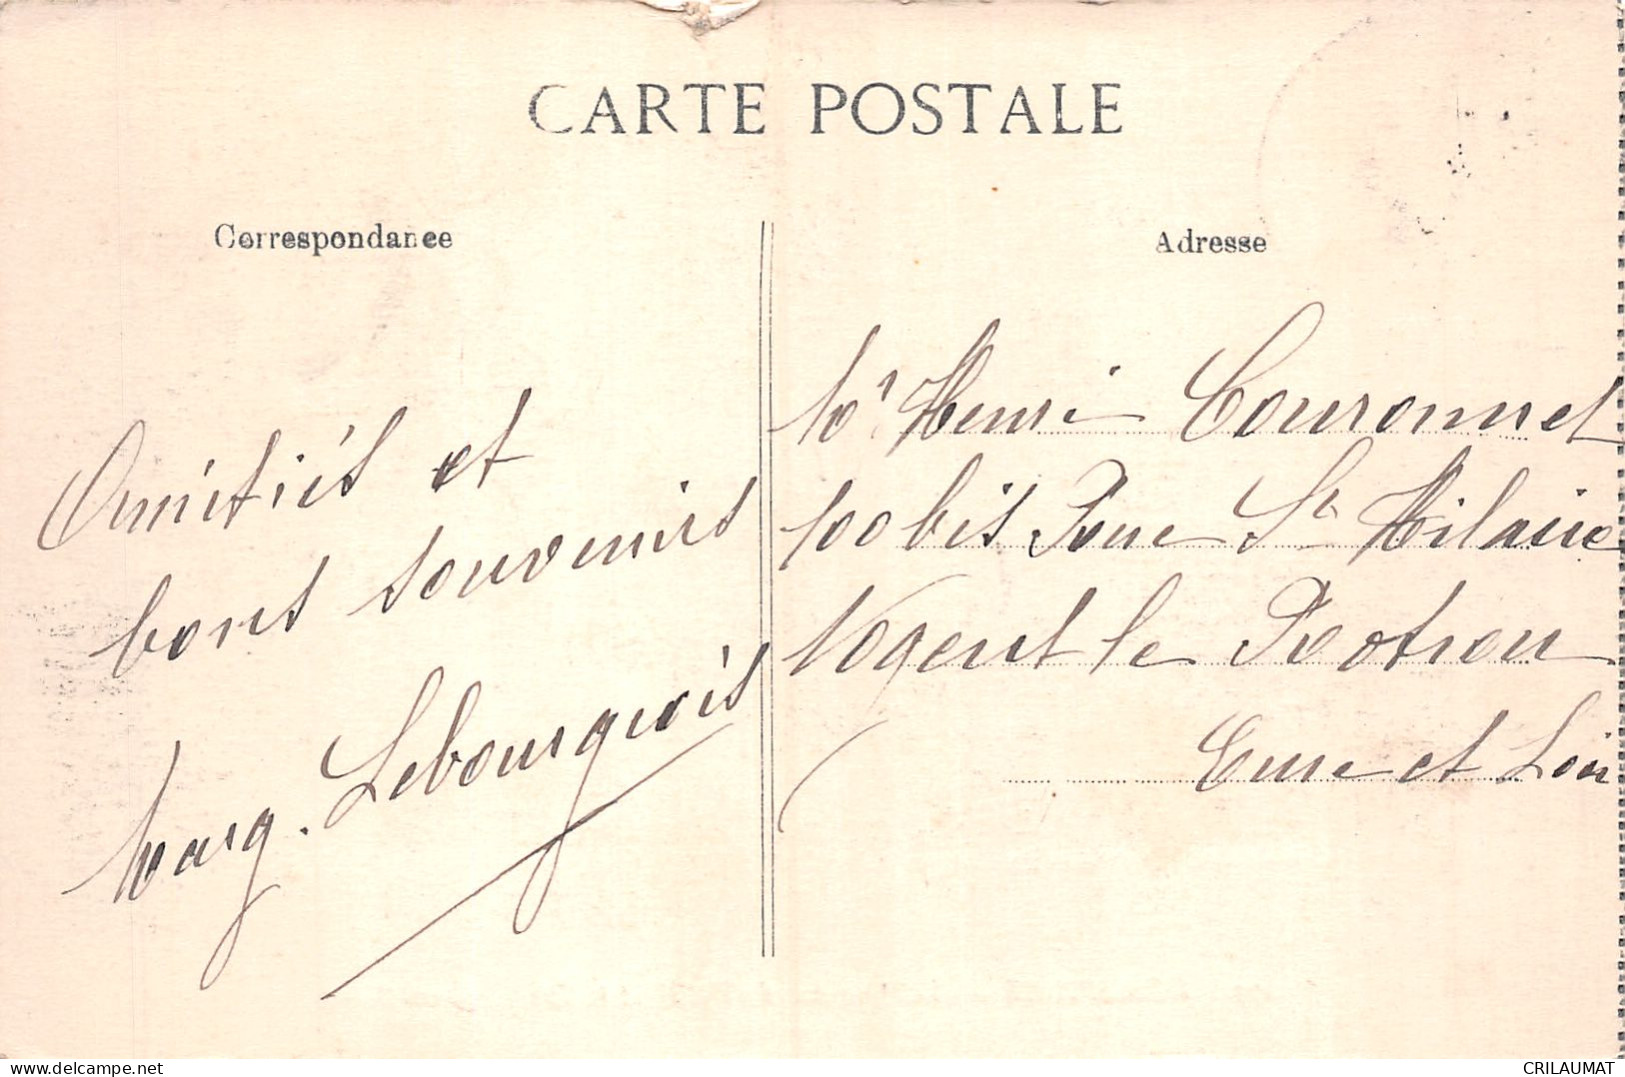 CARTE POSTALE
Correspondance
Amitiés et
bons souvenirs
Marg. Lebourgeois
Adresse
Mr Henri Couronnet
100 bis Rue St Hilaire
Nogent le Rotrou
Eure et Loir
www.delcampe.net
crisetlau
CRILAUMAT